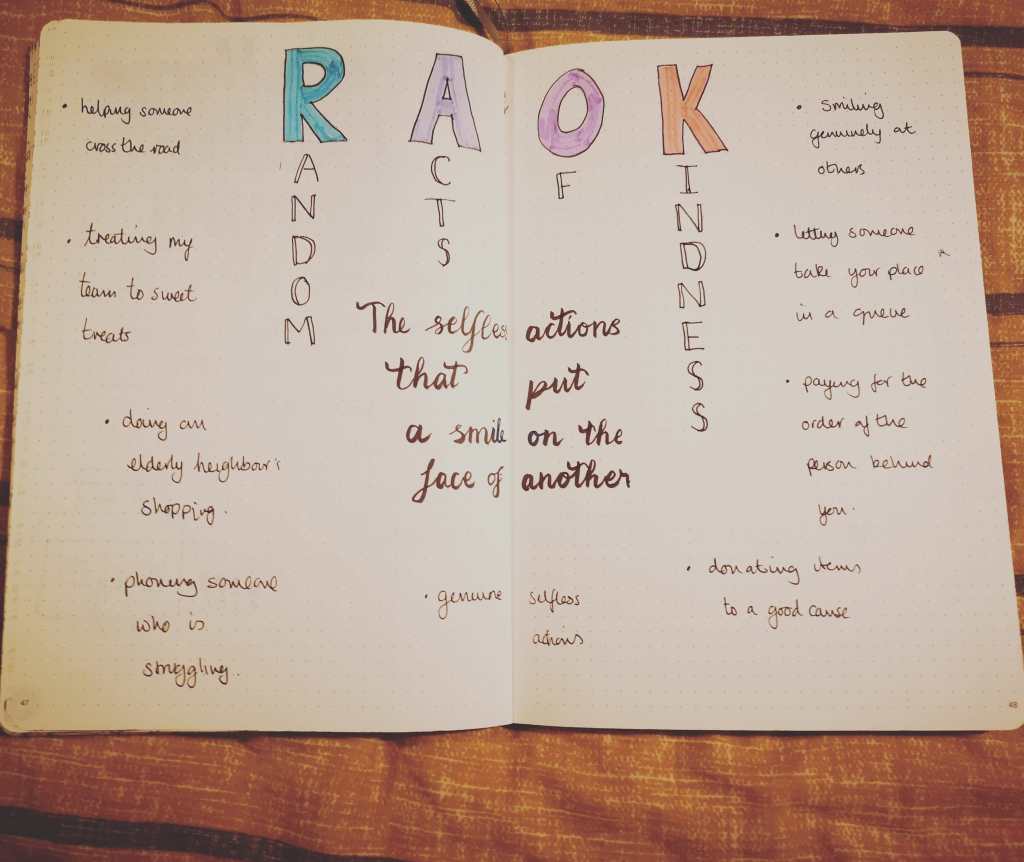 RAOK
RANDOM
ACTS
OF
KINDNESS
• helping someone
cross the road
• treating my
team to sweet
treats
• doing an
elderly neighbour's
shopping.
• phoning someone
who is
struggling.
The selfless actions
that put
a smile on the
face of another
• genuine selfless
actions
• Smiling
genuinely at
others
• letting someone
take your place
in a queue
• paying for the
order of the
person behind
you.
• donating items
to a good cause
47
48